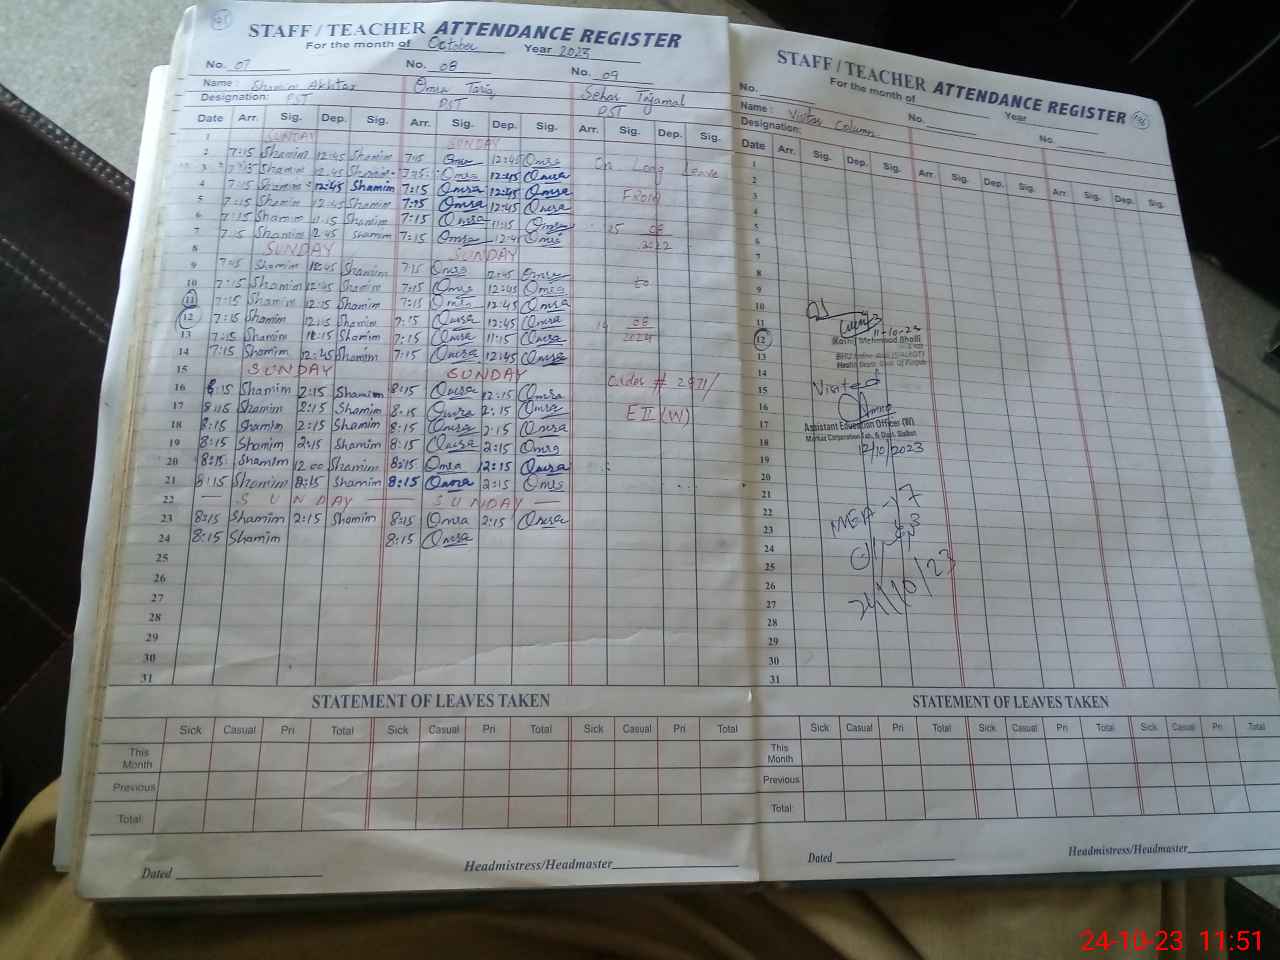 STAFF / TEACHER ATTENDANCE REGISTER
For the month of October Year 2023
No. 07 No. 08 No. 09
Name: Shamim Akhtar Omra Tariq Sehar Tajamal
Designation: PST PST PST
Date Arr. Sig. Dep. Sig. Arr. Sig. Dep. Sig. Arr. Sig. Dep. Sig.
1 SUNDAY SUNDAY
2 7:15 Shamim 12:45 Shamim 7:15 Omra 12:45 Omra On Long Leave
3 7:15 Shamim 12:45 Shamim 7:15 Omra 12:45 Omra
4 7:15 Shamim 12:45 Shamim 7:15 Omra 12:45 Omra From
5 7:15 Shamim 12:45 Shamim 7:15 Omra 12:45 Omra
6 7:15 Shamim 11:15 Shamim 7:15 Omra 11:15 Omra 25 08
7 7:15 Shamim 12:45 Shamim 7:15 Omra 12:45 Omra 2022
8 SUNDAY SUNDAY
9 7:15 Shamim 12:45 Shamim 7:15 Omra 12:45 Omra
10 7:15 Shamim 12:45 Shamim 7:15 Omra 12:45 Omra to
11 7:15 Shamim 12:15 Shamim 7:15 Omra 12:45 Omra
12 7:15 Shamim 12:15 Shamim 7:15 Omra 12:45 Omra 08
13 7:15 Shamim 11:15 Shamim 7:15 Omra 11:15 Omra 2024
14 7:15 Shamim 12:45 Shamim 7:15 Omra 12:45 Omra
15 SUNDAY SUNDAY
16 8:15 Shamim 2:15 Shamim 8:15 Omra 2:15 Omra Order # 2971/
17 8:15 Shamim 2:15 Shamim 8:15 Omra 2:15 Omra
18 8:15 Shamim 2:15 Shamim 8:15 Omra 2:15 Omra E II (W)
19 8:15 Shamim 2:15 Shamim 8:15 Omra 2:15 Omra
20 8:15 Shamim 12:00 Shamim 8:15 Omra 12:15 Omra
21 8:15 Shamim 8:15 Shamim 8:15 Omra 2:15 Omra
22 SUNDAY SUNDAY
23 8:15 Shamim 2:15 Shamim 8:15 Omra 2:15 Omra
24 8:15 Shamim 8:15 Omra
25
26
27
28
29
30
31
STATEMENT OF LEAVES TAKEN
Sick Casual Pri Total Sick Casual Pri Total Sick Casual Pri Total
This Month
Previous
Total:
Dated Headmistress/Headmaster
STAFF / TEACHER ATTENDANCE REGISTER
For the month of Year
No. No. No.
Name: Visitor Column
Designation:
Date Arr. Sig. Dep. Sig. Arr. Sig. Dep. Sig. Arr. Sig. Dep. Sig.
1
2
3
4
5
6
7
8
9
10
11 11-10-23
12
13
14
15 Visited
16
17 Assistant Education Officer (W)
18 12/10/2023
19
20
21
22 MEA - 7
23
24
25
26 24/10/23
27
28
29
30
31
STATEMENT OF LEAVES TAKEN
Sick Casual Pri Total Sick Casual Pri Total Sick Casual Pri Total
This Month
Previous
Total:
Dated Headmistress/Headmaster
24-10-23 11:51